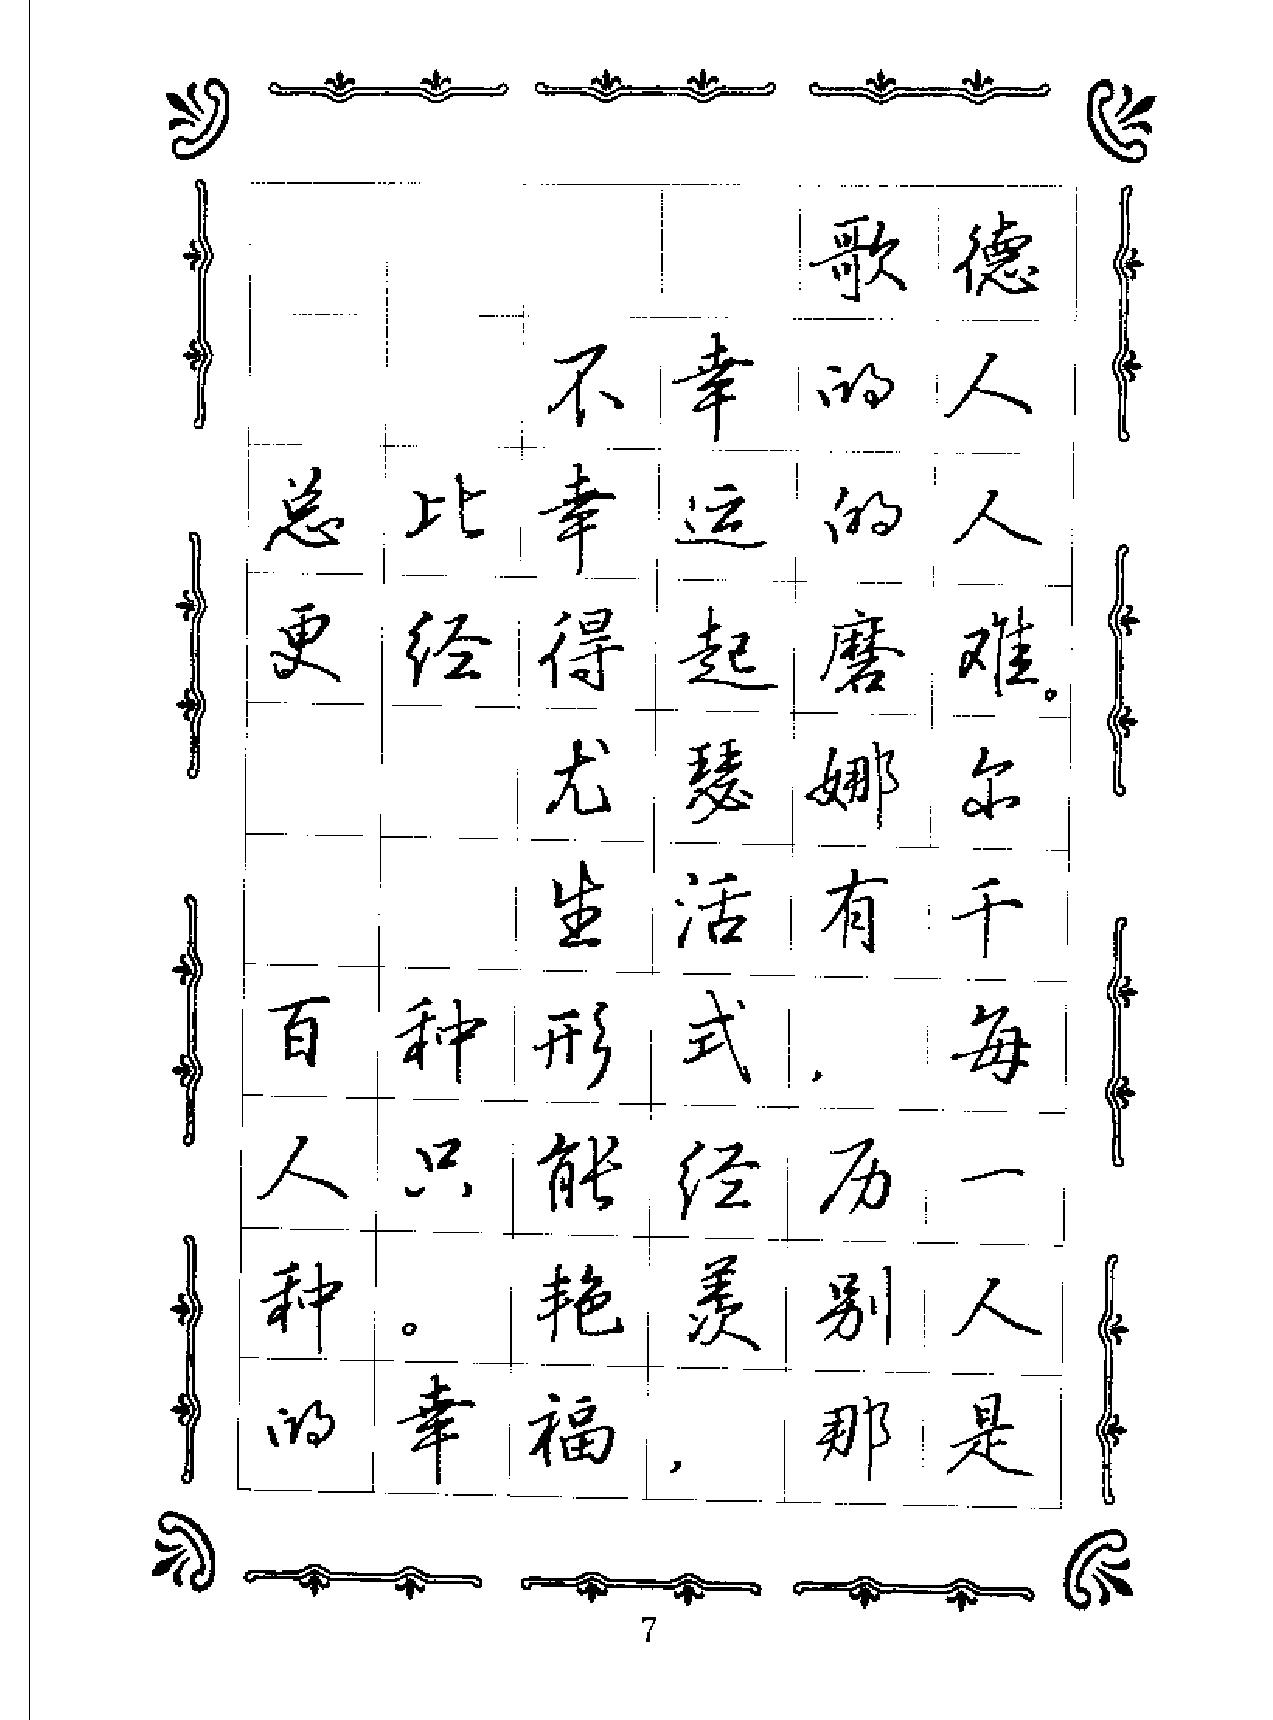 歌德
不幸的人
总比幸运的人
更经得起磨难。
尤瑟娜尔
生活有千
百种形式,每
人只能经历一
种。艳羡别人
的幸福,那是
7